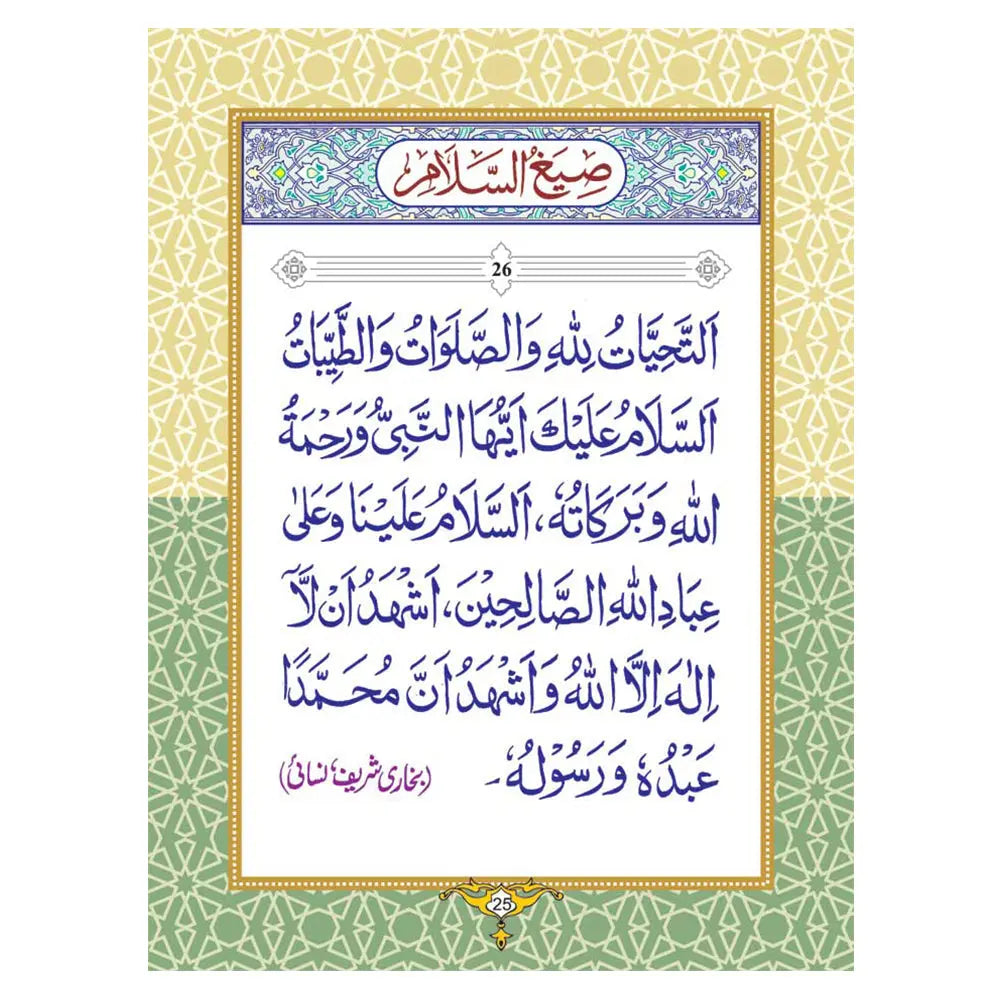 صِيَغُ السَّلَامِ
26
اَلتَّحِيَّاتُ لِلّٰهِ وَالصَّلَوَاتُ وَالطَّيِّبَاتُ
اَلسَّلَامُ عَلَيْكَ اَيُّهَا النَّبِيُّ وَرَحْمَةُ
اللهِ وَبَرَكَاتُهٗ، اَلسَّلَامُ عَلَيْنَا وَعَلٰى
عِبَادِ اللهِ الصَّالِحِيْنَ، اَشْهَدُ اَنْ لَّآ
اِلٰهَ اِلَّا اللهُ وَاَشْهَدُ اَنَّ مُحَمَّدًا
عَبْدُهٗ وَرَسُوْلُهٗ۔ (بخاری شریف، نسائی)
25